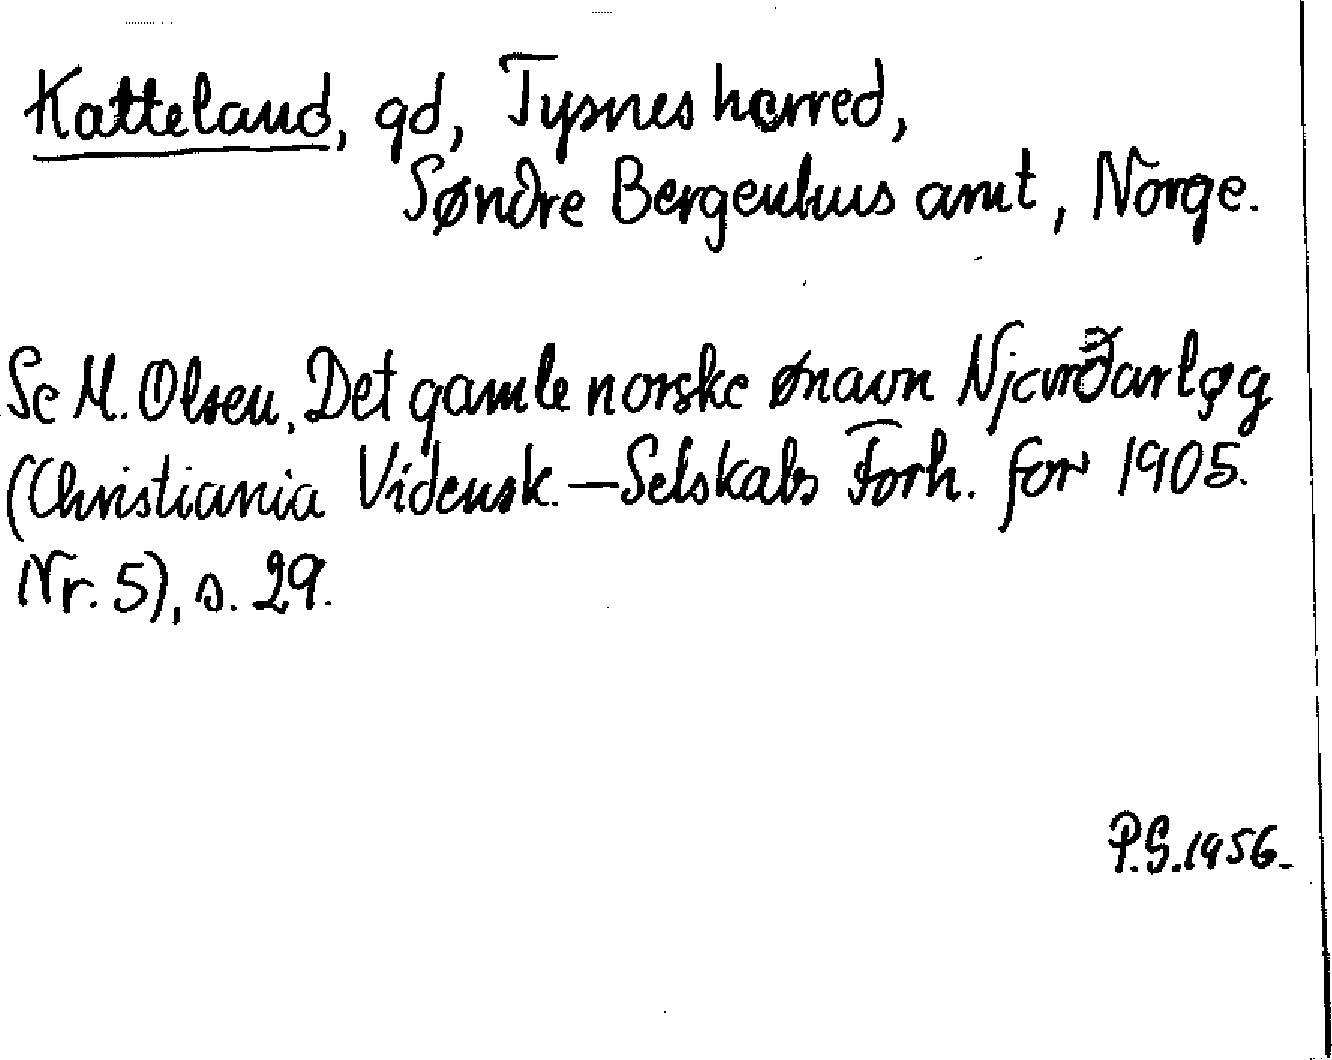 Katteland, gd, Tysnes herred,
Søndre Bergenhus amt, Norge.
Se M. Olsen, Det gamle norske ønavn Njarðarløg
(Christiania Vidensk.-Selskabs Forh. for 1905.
Nr. 5), s. 29.
P.S. 1956.